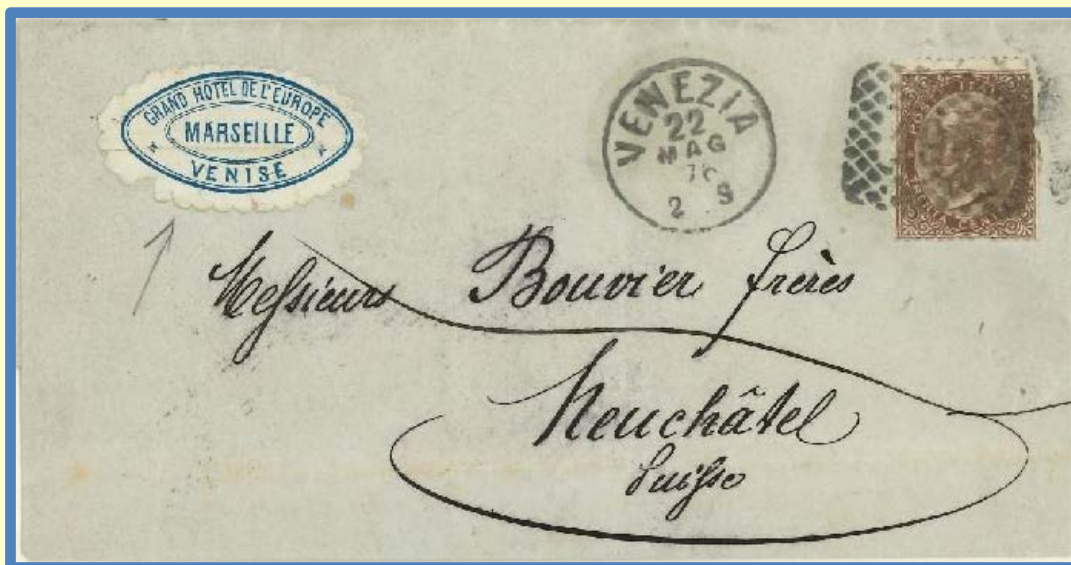 GRAND HÔTEL DE L'EUROPE
MARSEILLE
VENISE
VENEZIA
22
MAG
76
2 S
Messieurs Bouvier frères
Neuchâtel
Suisse